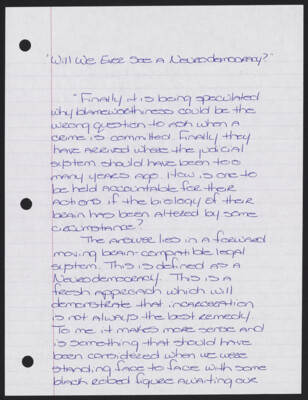 "Will We Ever See A Neurodemocracy?"
"Finally it is being speculated
why blameworthiness could be the
wrong question to ask when a
crime is committed. Finally they
have arrived where the judicial
system should have been too
many years ago. How is one to
be held accountable for their
actions if the biology of their
brain has been altered by some
circumstance?
The answer lies in a forward
moving brain-compatible legal
system. This is defined as a
Neurodemocracy. This is a
fresh approach which will
demonstrate that incarceration
is not always the best remedy.
To me it makes more sense and
is something that should have
been considered when we were
standing face to face with some
black robed figure awaiting our